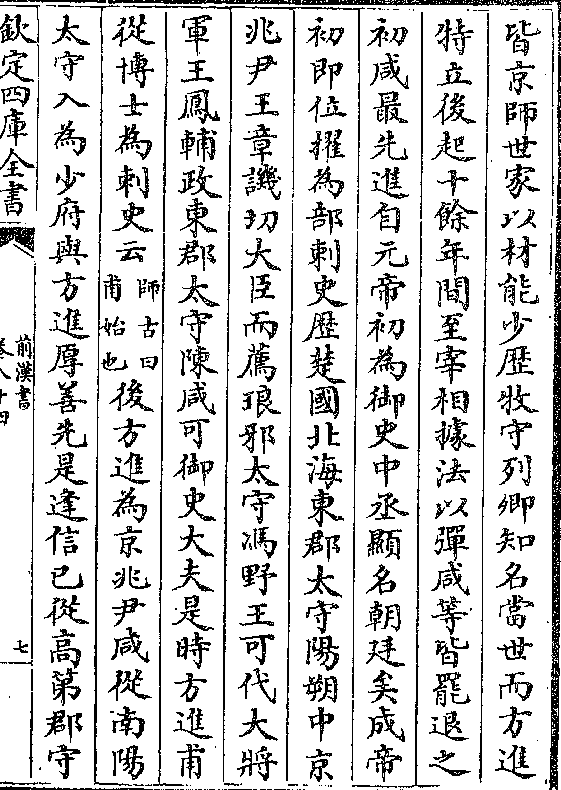 皆京師世家以材能少歴牧守列卿知名當世而方進
特立後起十餘年間至宰相據法以彈咸等皆罷退之
初咸最先進自元帝初為御史中丞顯名朝廷矣成帝
初即位擢為部刺史歴楚國北海東郡太守陽朔中京
兆尹王章譏切大臣而薦琅邪太守馮野王可代大將
軍王鳳輔政東郡太守陳咸可御史大夫是時方進甫
從博士為刺史云師古曰甫始也後方進為京兆尹咸從南陽
太守入為少府與方進厚善先是逢信已從高第郡守
欽定四庫全書
前漢書
卷八十四
七